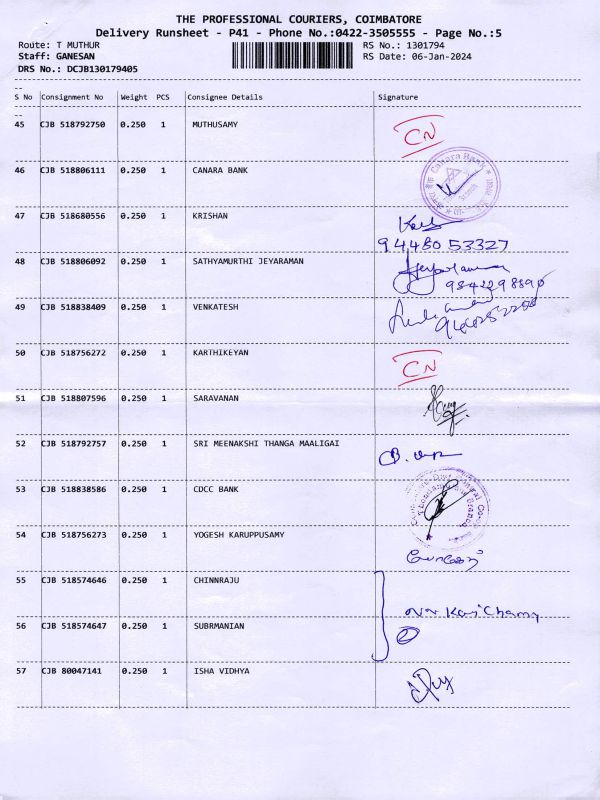 THE PROFESSIONAL COURIERS, COIMBATORE
Delivery Runsheet - P41 - Phone No.:0422-3505555 - Page No.:5
Route: T MUTHUR RS No.: 1301794
Staff: GANESAN RS Date: 06-Jan-2024
DRS No.: DCJB130179405
S No Consignment No Weight PCS Consignee Details Signature
45 CJB 518792750 0.250 1 MUTHUSAMY CN
46 CJB 518806111 0.250 1 CANARA BANK Canara Bank
47 CJB 518680556 0.250 1 KRISHAN
94480 53327
48 CJB 518806092 0.250 1 SATHYAMURTHI JEYARAMAN
9842298890
49 CJB 518838409 0.250 1 VENKATESH
50 CJB 518756272 0.250 1 KARTHIKEYAN CN
51 CJB 518807596 0.250 1 SARAVANAN
52 CJB 518792757 0.250 1 SRI MEENAKSHI THANGA MAALIGAI
53 CJB 518838586 0.250 1 CDCC BANK
54 CJB 518756273 0.250 1 YOGESH KARUPPUSAMY
55 CJB 518574646 0.250 1 CHINNRAJU
56 CJB 518574647 0.250 1 SUBRMANIAN
57 CJB 80047141 0.250 1 ISHA VIDHYA